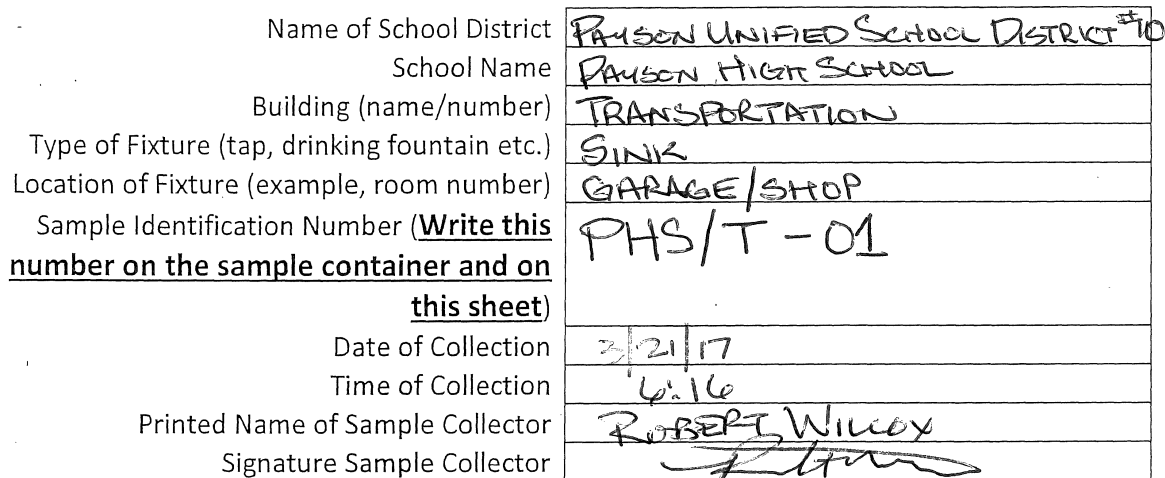 Name of School District PAYSON UNIFIED SCHOOL DISTRICT #10
School Name PAYSON HIGH SCHOOL
Building (name/number) TRANSPORTATION
Type of Fixture (tap, drinking fountain etc.) SINK
Location of Fixture (example, room number) GARAGE/SHOP
Sample Identification Number (Write this PHS/T - 01
number on the sample container and on
this sheet)
Date of Collection 3/21/17
Time of Collection 6:16
Printed Name of Sample Collector ROBERT WILCOX
Signature Sample Collector